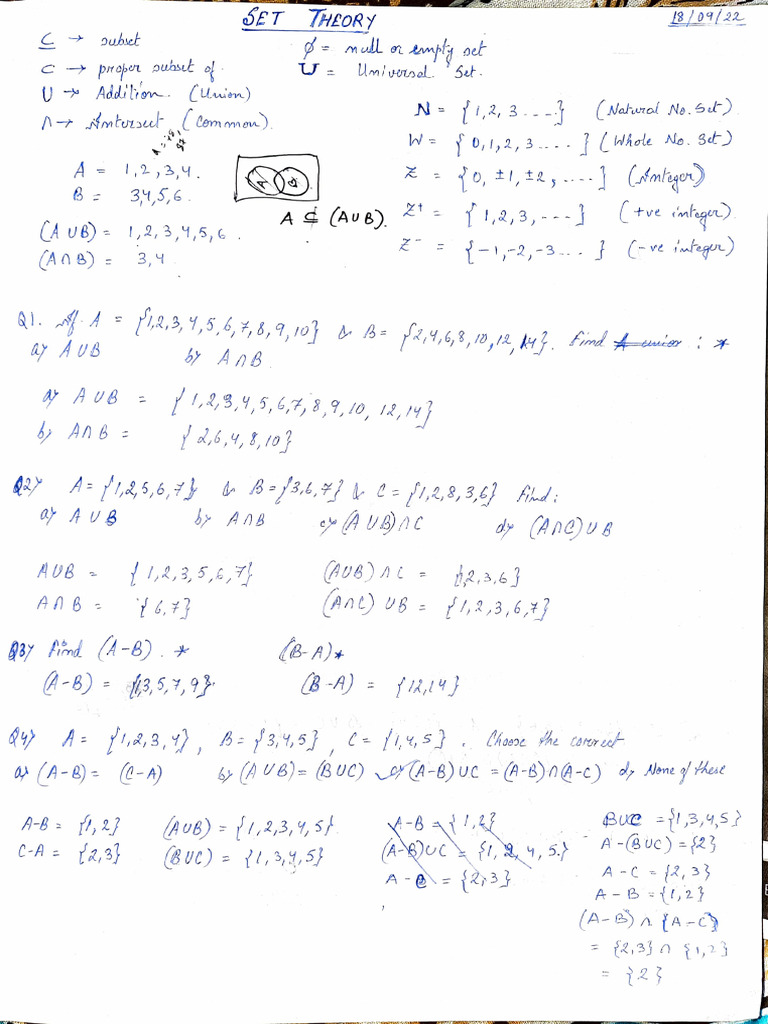 SET THEORY
18/09/22
⊆ → subset
⊂ → proper subset of
U → Addition (Union)
∩ → Intersect (Common)
ϕ = null or empty set
U = Universal Set.
N = {1, 2, 3 ----} (Natural No. Set)
W = {0, 1, 2, 3 ....} (Whole No. Set)
Z = {0, ±1, ±2, ....} (Integer)
Z+ = {1, 2, 3, ----} (+ve integer)
Z- = {-1, -2, -3 ....} (-ve integer)
A = 1, 2, 3, 4.
B = 3, 4, 5, 6.
(A ∪ B) = 1, 2, 3, 4, 5, 6.
(A ∩ B) = 3, 4.
A B
A ⊆ (A∪B).
Q1. If A = {1,2,3,4,5,6,7,8,9,10} & B = {2,4,6,8,10,12,14}. Find A union : *
a) A∪B b) A∩B
a) A∪B = {1,2,3,4,5,6,7,8,9,10, 12, 14}
b) A∩B = {2,6,4,8,10}
Q2) A = {1,2,5,6,7} & B = {3,6,7} & C = {1,2,8,3,6} Find:
a) A∪B b) A∩B c) (A∪B)∩C d) (A∩C)∪B
A∪B = {1,2,3,5,6,7} (A∪B)∩C = {1,2,3,6}
A∩B = {6,7} (A∩C)∪B = {1,2,3,6,7}
Q3) Find (A-B). * (B-A)*
(A-B) = {1,3,5,7,9} (B-A) = {12,14}
Q4) A = {1,2,3,4}, B = {3,4,5}, C = {1,4,5}. Choose the correct
a) (A-B) = (C-A) b) (A∪B) = (B∪C) ✓c) (A-B)∪C = (A-B)∩(A-C) d) None of these
A-B = {1,2}
C-A = {2,3}
(A∪B) = {1,2,3,4,5}
(B∪C) = {1,3,4,5}
A-B = {1,2}
(A-B)∪C = {1,2,4,5}
A-C = {2,3}
B∪C = {1,3,4,5}
A-(B∪C) = {2}
A-C = {2,3}
A-B = {1,2}
(A-B) ∩ {A-C}
= {2,3} ∩ {1,2}
= {2}